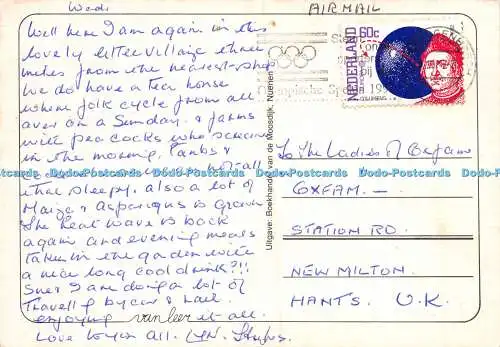 Wed.
Well here I am again in this
lovely little village three
miles from the nearest shop
We do have a tea house
where folk cycle from all
over on a Sunday. & farms
with peacocks who scream
in the morning.
not all
that sleepy. also a lot of
Maize & Asparagus is grown
The heat wave is back
again and evening meals
taken in the garden with
a nice long cool drink?!!
Sues I am doing a lot of
Travelling by car & rail.
enjoying van leer it all.
Love to you all.
AIRMAIL
NEDERLAND
60c
COLUMBUS
Olympische Spelen
Uitgave: Boekhandel van de Moosdijk, Nuenen
To The Ladies of Oxfam
OXFAM.
STATION RD.
NEW MILTON
HANTS. U.K.
Dodo-Postcards Dodo-Postcards Dodo-Postcards Dodo-Postcards